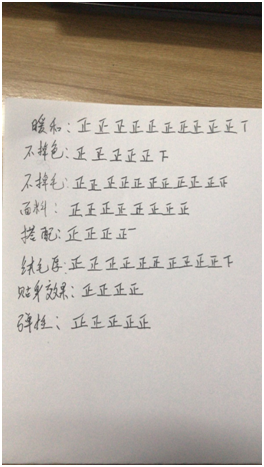 暖和：正正正正正正正正正正丅
不掉色：正正正正正下
不掉毛：正正正正正正正正正正
面料：正正正正正正正正
搭配：正正正正一
绒毛厚：正正正正正正正正正下
贴身效果：正正正正
弹性：正正正正正